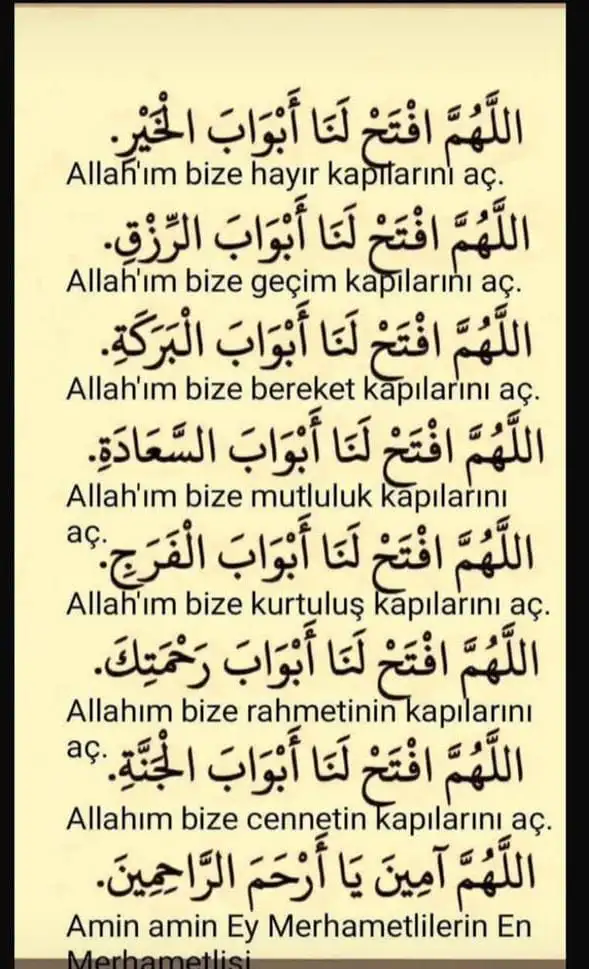 اللَّهُمَّ افْتَحْ لَنَا أَبْوَابَ الْخَيْرِ.
Allah'ım bize hayır kapılarını aç.
اللَّهُمَّ افْتَحْ لَنَا أَبْوَابَ الرِّزْقِ.
Allah'ım bize geçim kapılarını aç.
اللَّهُمَّ افْتَحْ لَنَا أَبْوَابَ الْبَرَكَةِ.
Allah'ım bize bereket kapılarını aç.
اللَّهُمَّ افْتَحْ لَنَا أَبْوَابَ السَّعَادَةِ.
Allah'ım bize mutluluk kapılarını
aç.
اللَّهُمَّ افْتَحْ لَنَا أَبْوَابَ الْفَرَجِ.
Allah'ım bize kurtuluş kapılarını aç.
اللَّهُمَّ افْتَحْ لَنَا أَبْوَابَ رَحْمَتِكَ.
Allahım bize rahmetinin kapılarını
aç.
اللَّهُمَّ افْتَحْ لَنَا أَبْوَابَ الْجَنَّةِ.
Allahım bize cennetin kapılarını aç.
اللَّهُمَّ آمِينَ يَا أَرْحَمَ الرَّاحِمِينَ.
Amin amin Ey Merhametlilerin En
Merhametlisi